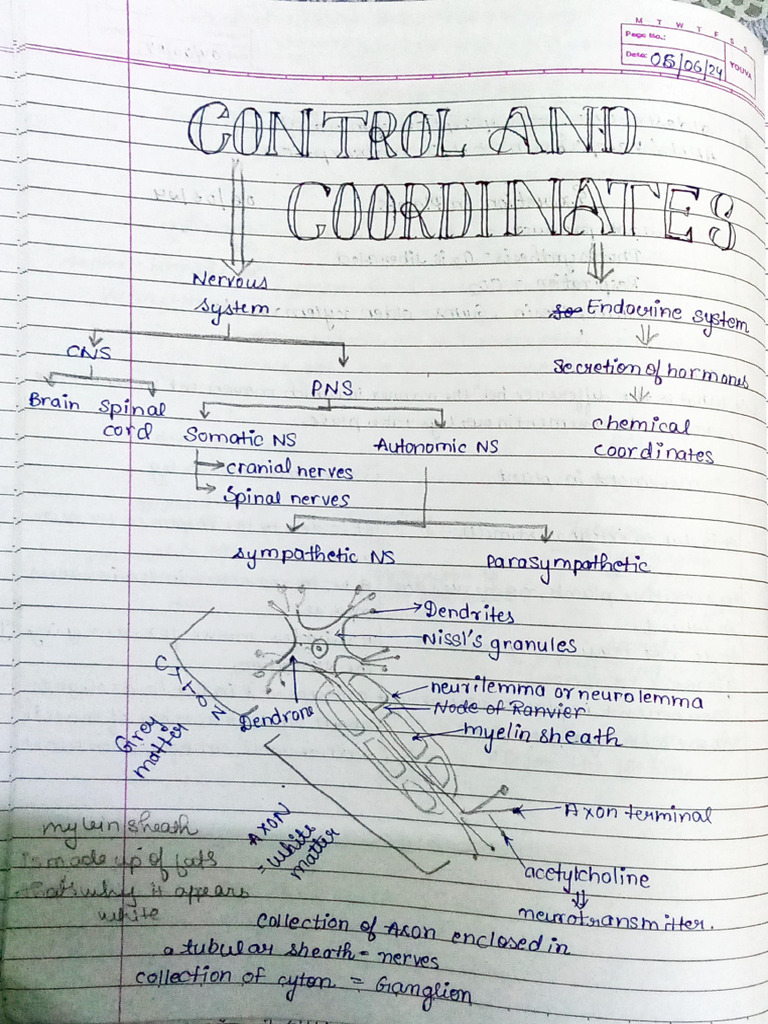 M T W T F S S
Page No.:
Date: 05/06/24
YOUVA
CONTROL AND
COORDINATES
Nervous
system
Endocrine system
CNS
Secretion of hormones
PNS
Brain Spinal
cord
chemical
coordinates
Somatic NS
Autonomic NS
cranial nerves
Spinal nerves
sympathetic NS
parasympathetic
Dendrites
Nissl's granules
CYTON
neurilemma or neurolemma
Node of Ranvier
Dendrone
Grey
matter
myelin sheath
Axon terminal
AXON
= White
matter
mylein sheath
is made up of fats
thats why it appears
white
acetylcholine
neurotransmitter.
collection of Axon enclosed in
a tubular sheath = nerves
collection of cyton = Ganglion